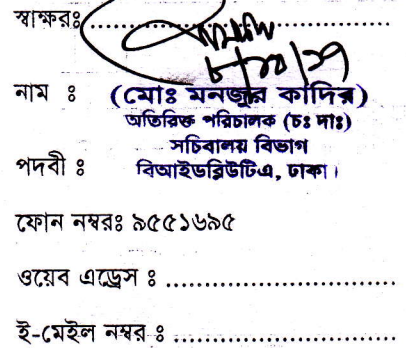 স্বাক্ষরঃ
৮/১০/১৭
নাম ঃ (মোঃ মনজুর কাদির)
অতিরিক্ত পরিচালক (চঃ দাঃ)
সচিবালয় বিভাগ
পদবী ঃ বিআইডব্লিউটিএ, ঢাকা।
ফোন নম্বরঃ ৯৫৫১৬৯৫
ওয়েব এড্রেস ঃ ..............................
ই-মেইল নম্বর ঃ ..............................